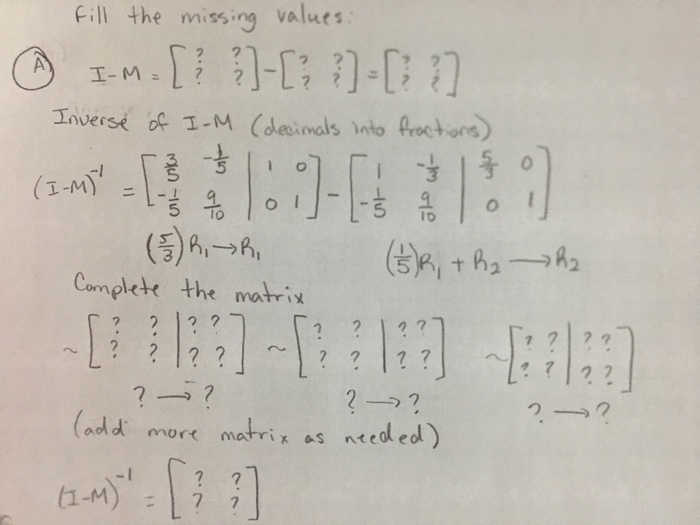 Fill the missing values:
(A) I-M = [? ? ? ?] - [? ? ? ?] = [? ? ? ?]
Inverse of I-M (decimals into fractions)
(I-M)⁻¹ = [3/5 -1/5 | 1 0; -1/5 9/10 | 0 1] - [1 -1/3 | 5/3 0; -1/5 9/10 | 0 1]
(5/3) R₁ → R₁ (1/5) R₁ + R₂ → R₂
Complete the matrix
~ [? ? | ? ?; ? ? | ? ?] ~ [? ? | ? ?; ? ? | ? ?] ~ [? ? | ? ?; ? ? | ? ?]
? → ? ? → ? ? → ?
(add more matrix as needed)
(I-M)⁻¹ = [? ? ? ?]